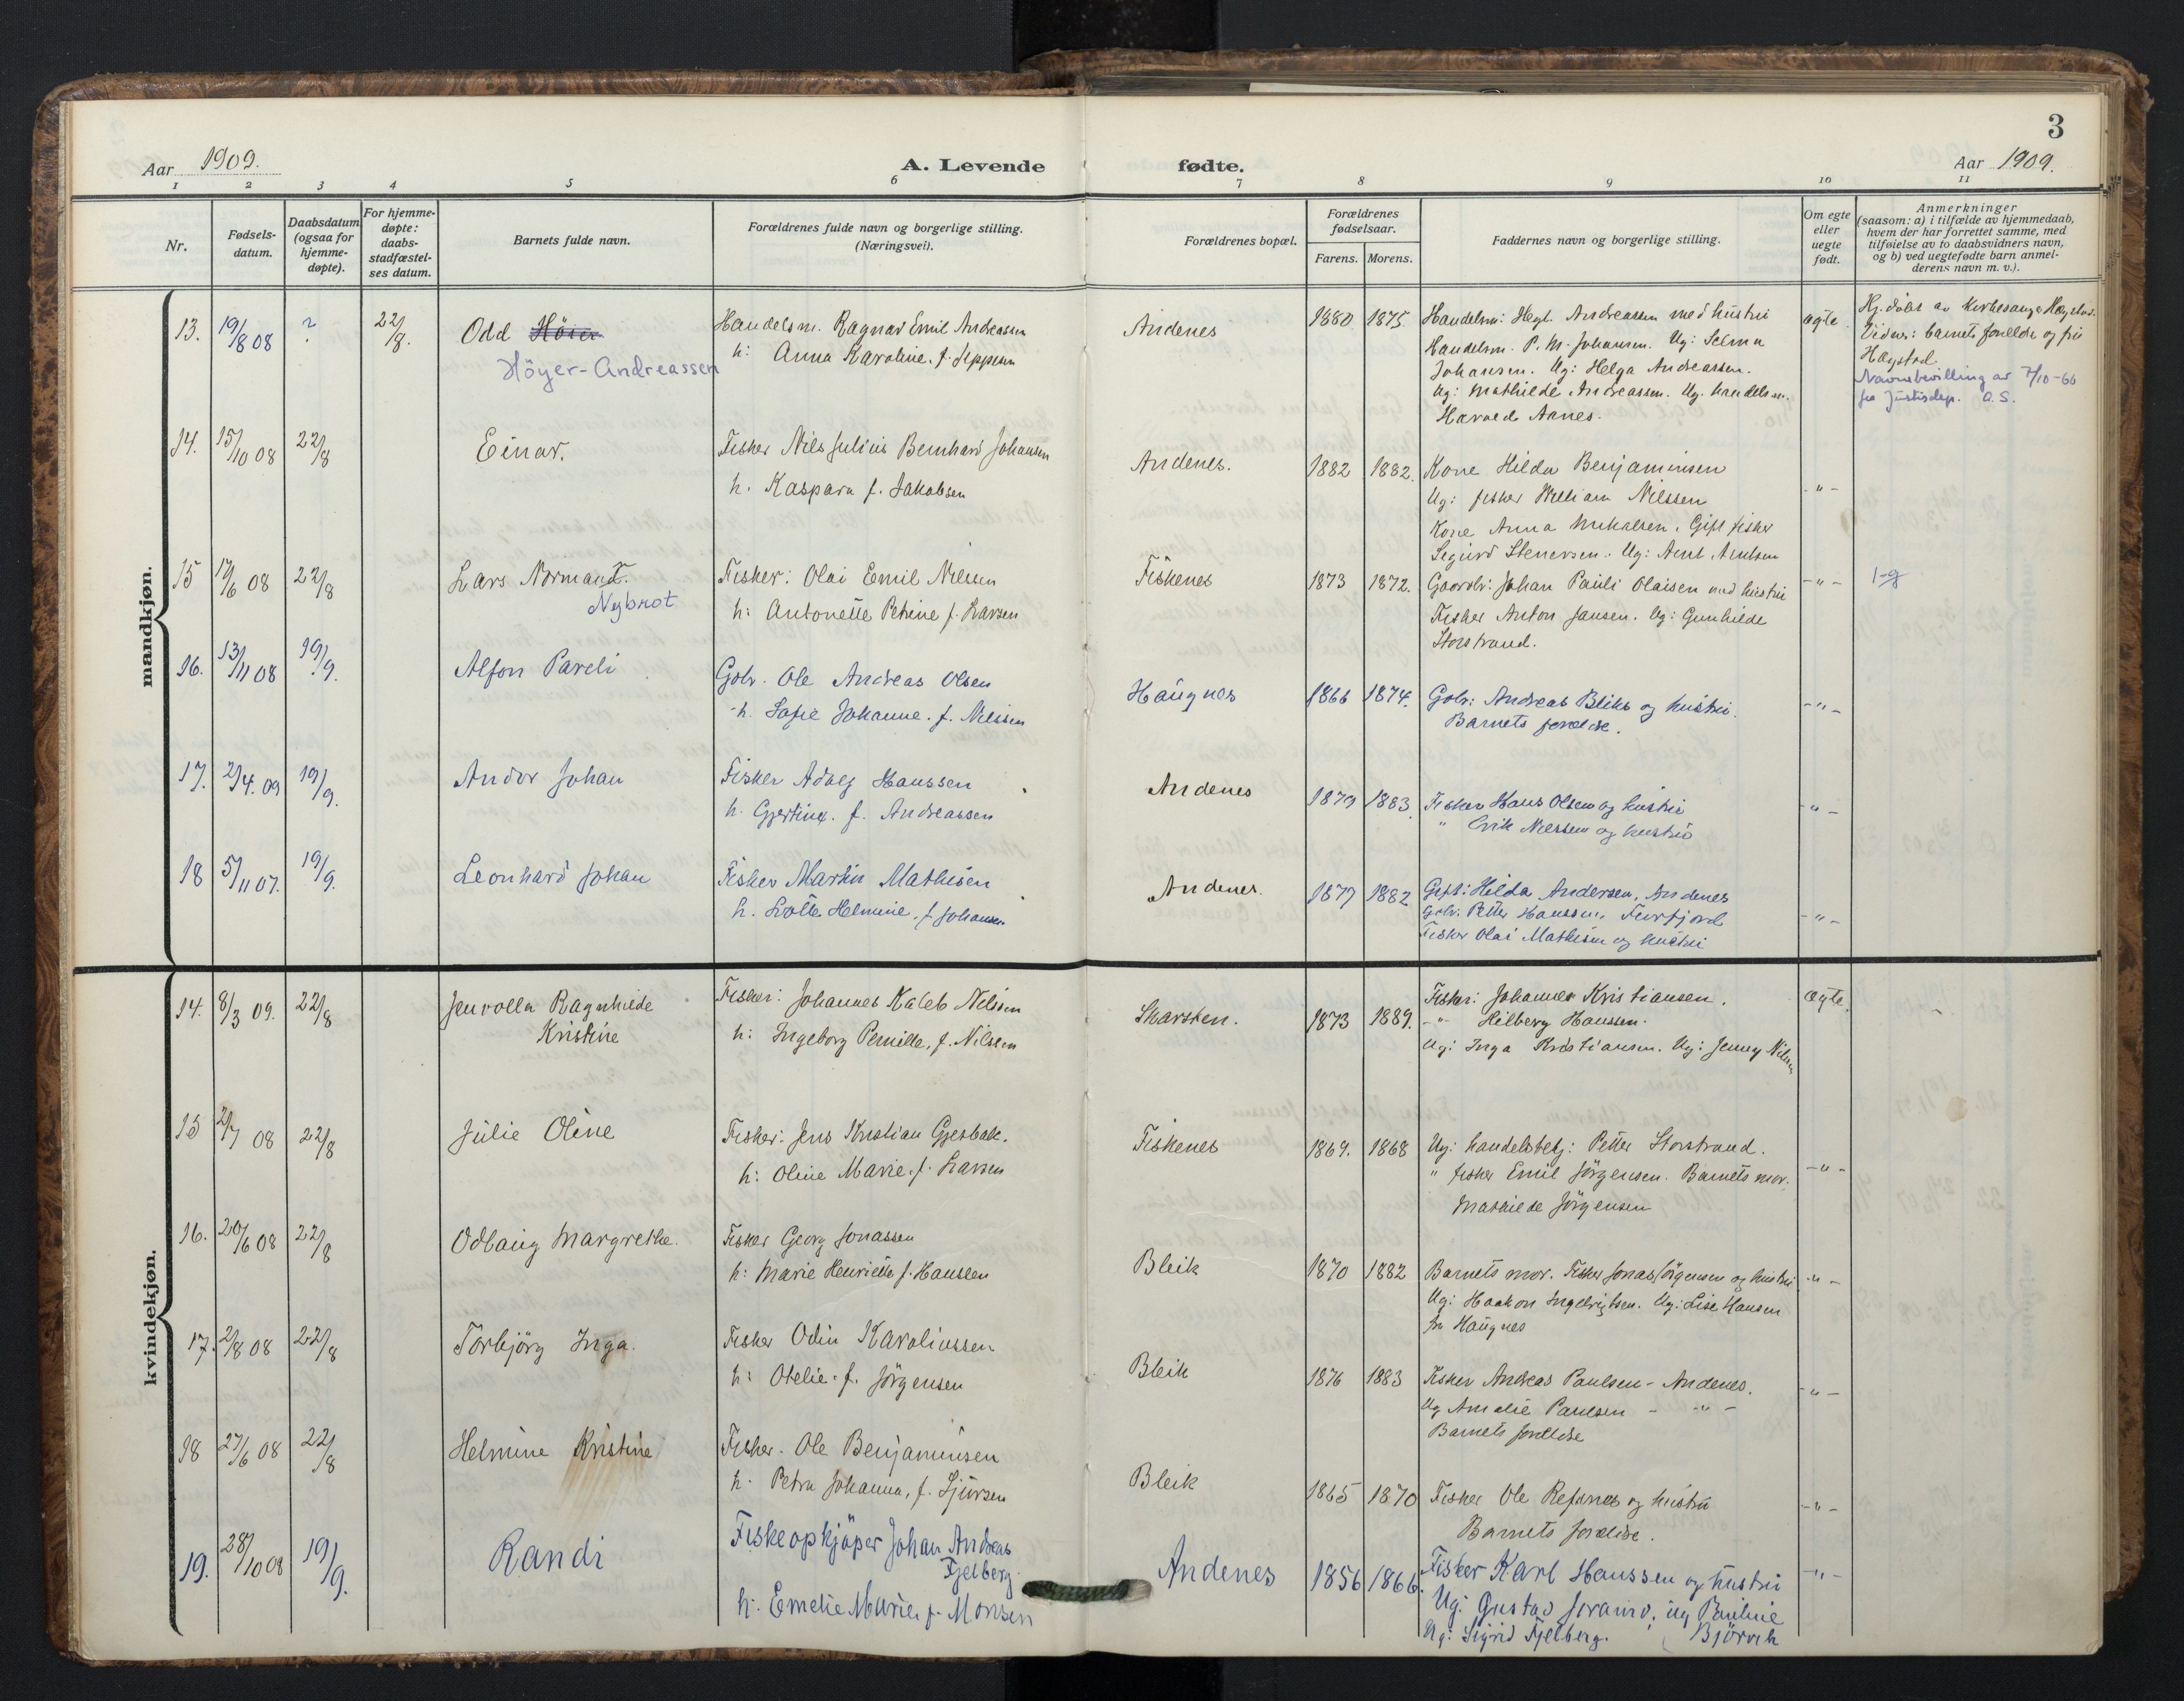 3
Aar 1909.
A. Levende fødte.
Aar 1909.
1 2 3 4 5 6 7 8 9 10 11
Nr.
Fødsels-
datum.
Daabsdatum
(ogsaa for
hjemme-
døpte).
For hjemme-
døpte:
daabs-
stadfæstel-
ses datum.
Barnets fulde navn.
Forældrenes fulde navn og borgerlige stilling.
(Næringsvei).
Forældrenes bopæl.
Forældrenes
fødselsaar.
Farens. Morens.
Faddernes navn og borgerlige stilling.
Om egte
eller
uegte
født.
Anmerkninger
(saasom: a) i tilfælde av hjemmedaab,
hvem der har forrettet samme, med
tilføielse av to daabsvidners navn,
og b) ved uegtefødte barn anmel-
derens navn m. v.).
mandkjøn.
13. 19/8 08 ? 22/8. Odd Höier
Höyer-Andreassen
Handelsm. Ragnar Emil Andreassen
h: Anna Karoline f. Jeppesen
Andenes 1880 1875
Handelsm: Hegl. Andreassen med hustru
Handelsm. P. M. Johansen. Ug: Selma
Johansen. Ug: Helga Andreassen.
Ug: Mathilde Andreassen. Ug. handelsm.
Harald Aanes.
ægte
Hj. døbt av kirkesanger Høgstad.
Vidner: barnets forældre og fru
Høgstad
Navnebevilling av 7/10-66
fra Justisdep. O.S.
14. 15/10 08 22/8 Einar.
Fisker Nils Julius Bernhard Johansen
h. Kaspara f. Jakobsen
Andenes. 1882 1882.
Kone Hilda Benjaminsen
Ug: fisker William Nilssen
Kone Anna Mikalsen. Gift fisker
Sigurd Stenersen. Ug: Arnt Arntsen
- " -
15 17/6 08 22/8 Lars Normand.
Nybrot
Fisker: Olai Emil Nilsen
h: Antonette Petrine f. Larsen
Fiskenes 1873 1872.
Gaardbr: Johan Pauli Olaisen med hustru
Fisker Anton Jansen. Ug: Gunhilde
Storstrand.
- " - 1-g
16. 13/11 08 19/9. Alfon Pareli
Gbr. Ole Andreas Olsen
h. Sofie Johanne. f. Nilssen
Haugnes 1866 1874.
Gbr: Andreas Bliks og hustru.
Barnets forældre.
- " -
17. 2/4. 09 19/9. Andor Johan
Fisker Adolf Hanssen
h. Gjertine. f. Andreassen
Andenes 1879 1883.
Fisker Hans Olsen og hustru
" Erik Nilssen og hustru
- " -
18 5/11 07. 19/9. Leonhard Johan
Fisker Martin Mathisen
h. Lotte Helmine. f. Johansen.
Andenes. 1877 1882
Gift: Hilda Andersen, Andenes
Gbr. Petter Hanssen, Finfjord
Fisker Olai Mathisen og hustru
- " -
kvindekjøn.
14. 8/3 09. 22/8 Jenvolla Ragnhilde
Kristine
Fisker: Johannes Kaleb Nilssen
h: Ingeborg Pernille, f. Nilsen
Skarsten. 1873 1889.
Fisker: Johannes Kristiansen.
- " - Hilberg Hanssen.
Ug: Inga Kristiansen. Ug: Jenny Nilsen
ægte.
15 2/7 08 22/8 Julie Oline
Fisker: Jens Kristian Gjesbak.
h: Oline Marie. f. Larsen
Fiskenes 1869. 1868
Ug: handelsbetj: Petter Storstrand.
" fisker Emil Jørgensen. Barnets mor.
Mathilde Jörgensen
- " -
16. 20/6 08 22/8 Odlaug Margrethe.
Fisker Georg Jonassen
h: Marie Henriette f. Hanssen
Bleik 1870 1882
Barnets mor. Fisker Jonas Jörgensen og hustru
Ug: Haakon Ingebrigtsen. Ug: Lise Hansen
fra Haugnes
- " -
17. 2/8 08 22/8 Torbjörg Inga.
Fisker Odin Karoliussen
h: Otelie. f. Jörgensen
Bleik 1876 1883
Fisker Andreas Paulsen - Andenes.
Ug Amalie Paulsen - " -
Barnets forældre
- " -
18 27/6 08 22/8 Helmine Kristine
Fisker. Ole Benjaminsen
h. Petra Johanna, f. Sjursen
Bleik 1865 1870
Fisker Ole Refsnes og hustru
Barnets forældre.
- " -
19. 28/10 08 19/9. Randi
Fiskeopkjøper Johan Andreas
Fjelberg
h: Emelie Marie f. Monsen
Andenes 1856 1866.
Fisker Karl Hanssen og hustru
Ug: Gustav Joramo, ug Pauline
Ug: Sigrid Fjelberg. Bjørvik
- " -